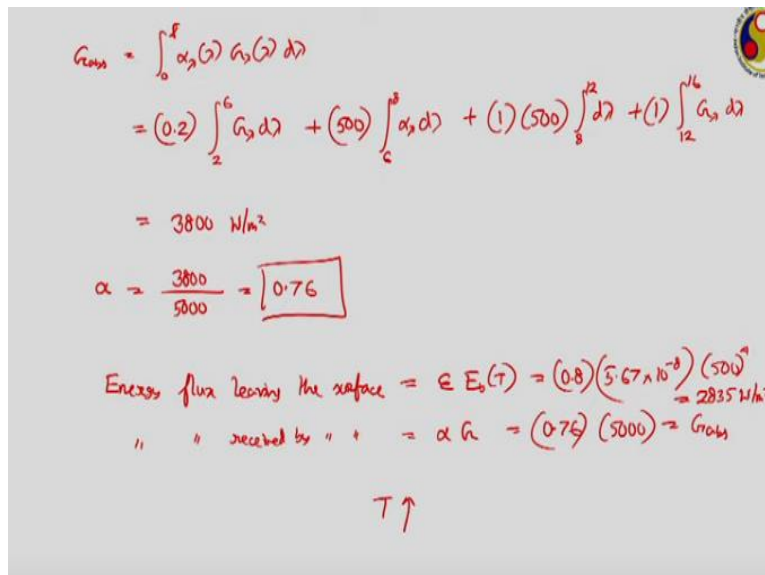 G_abs = ∫_0^8 α_λ(λ) G_λ(λ) dλ
= (0.2) ∫_2^6 G_λ dλ + (500) ∫_6^8 α_λ dλ + (1) (500) ∫_8^12 dλ + (1) ∫_12^16 G_λ dλ
= 3800 W/m²
α = 3800/5000 = 0.76
Energy flux leaving the surface = ε E_b(T) = (0.8) (5.67 × 10^-8) (500)^4
= 2835 W/m²
" " received by " " = α G = (0.76) (5000) = G_abs
T ↑